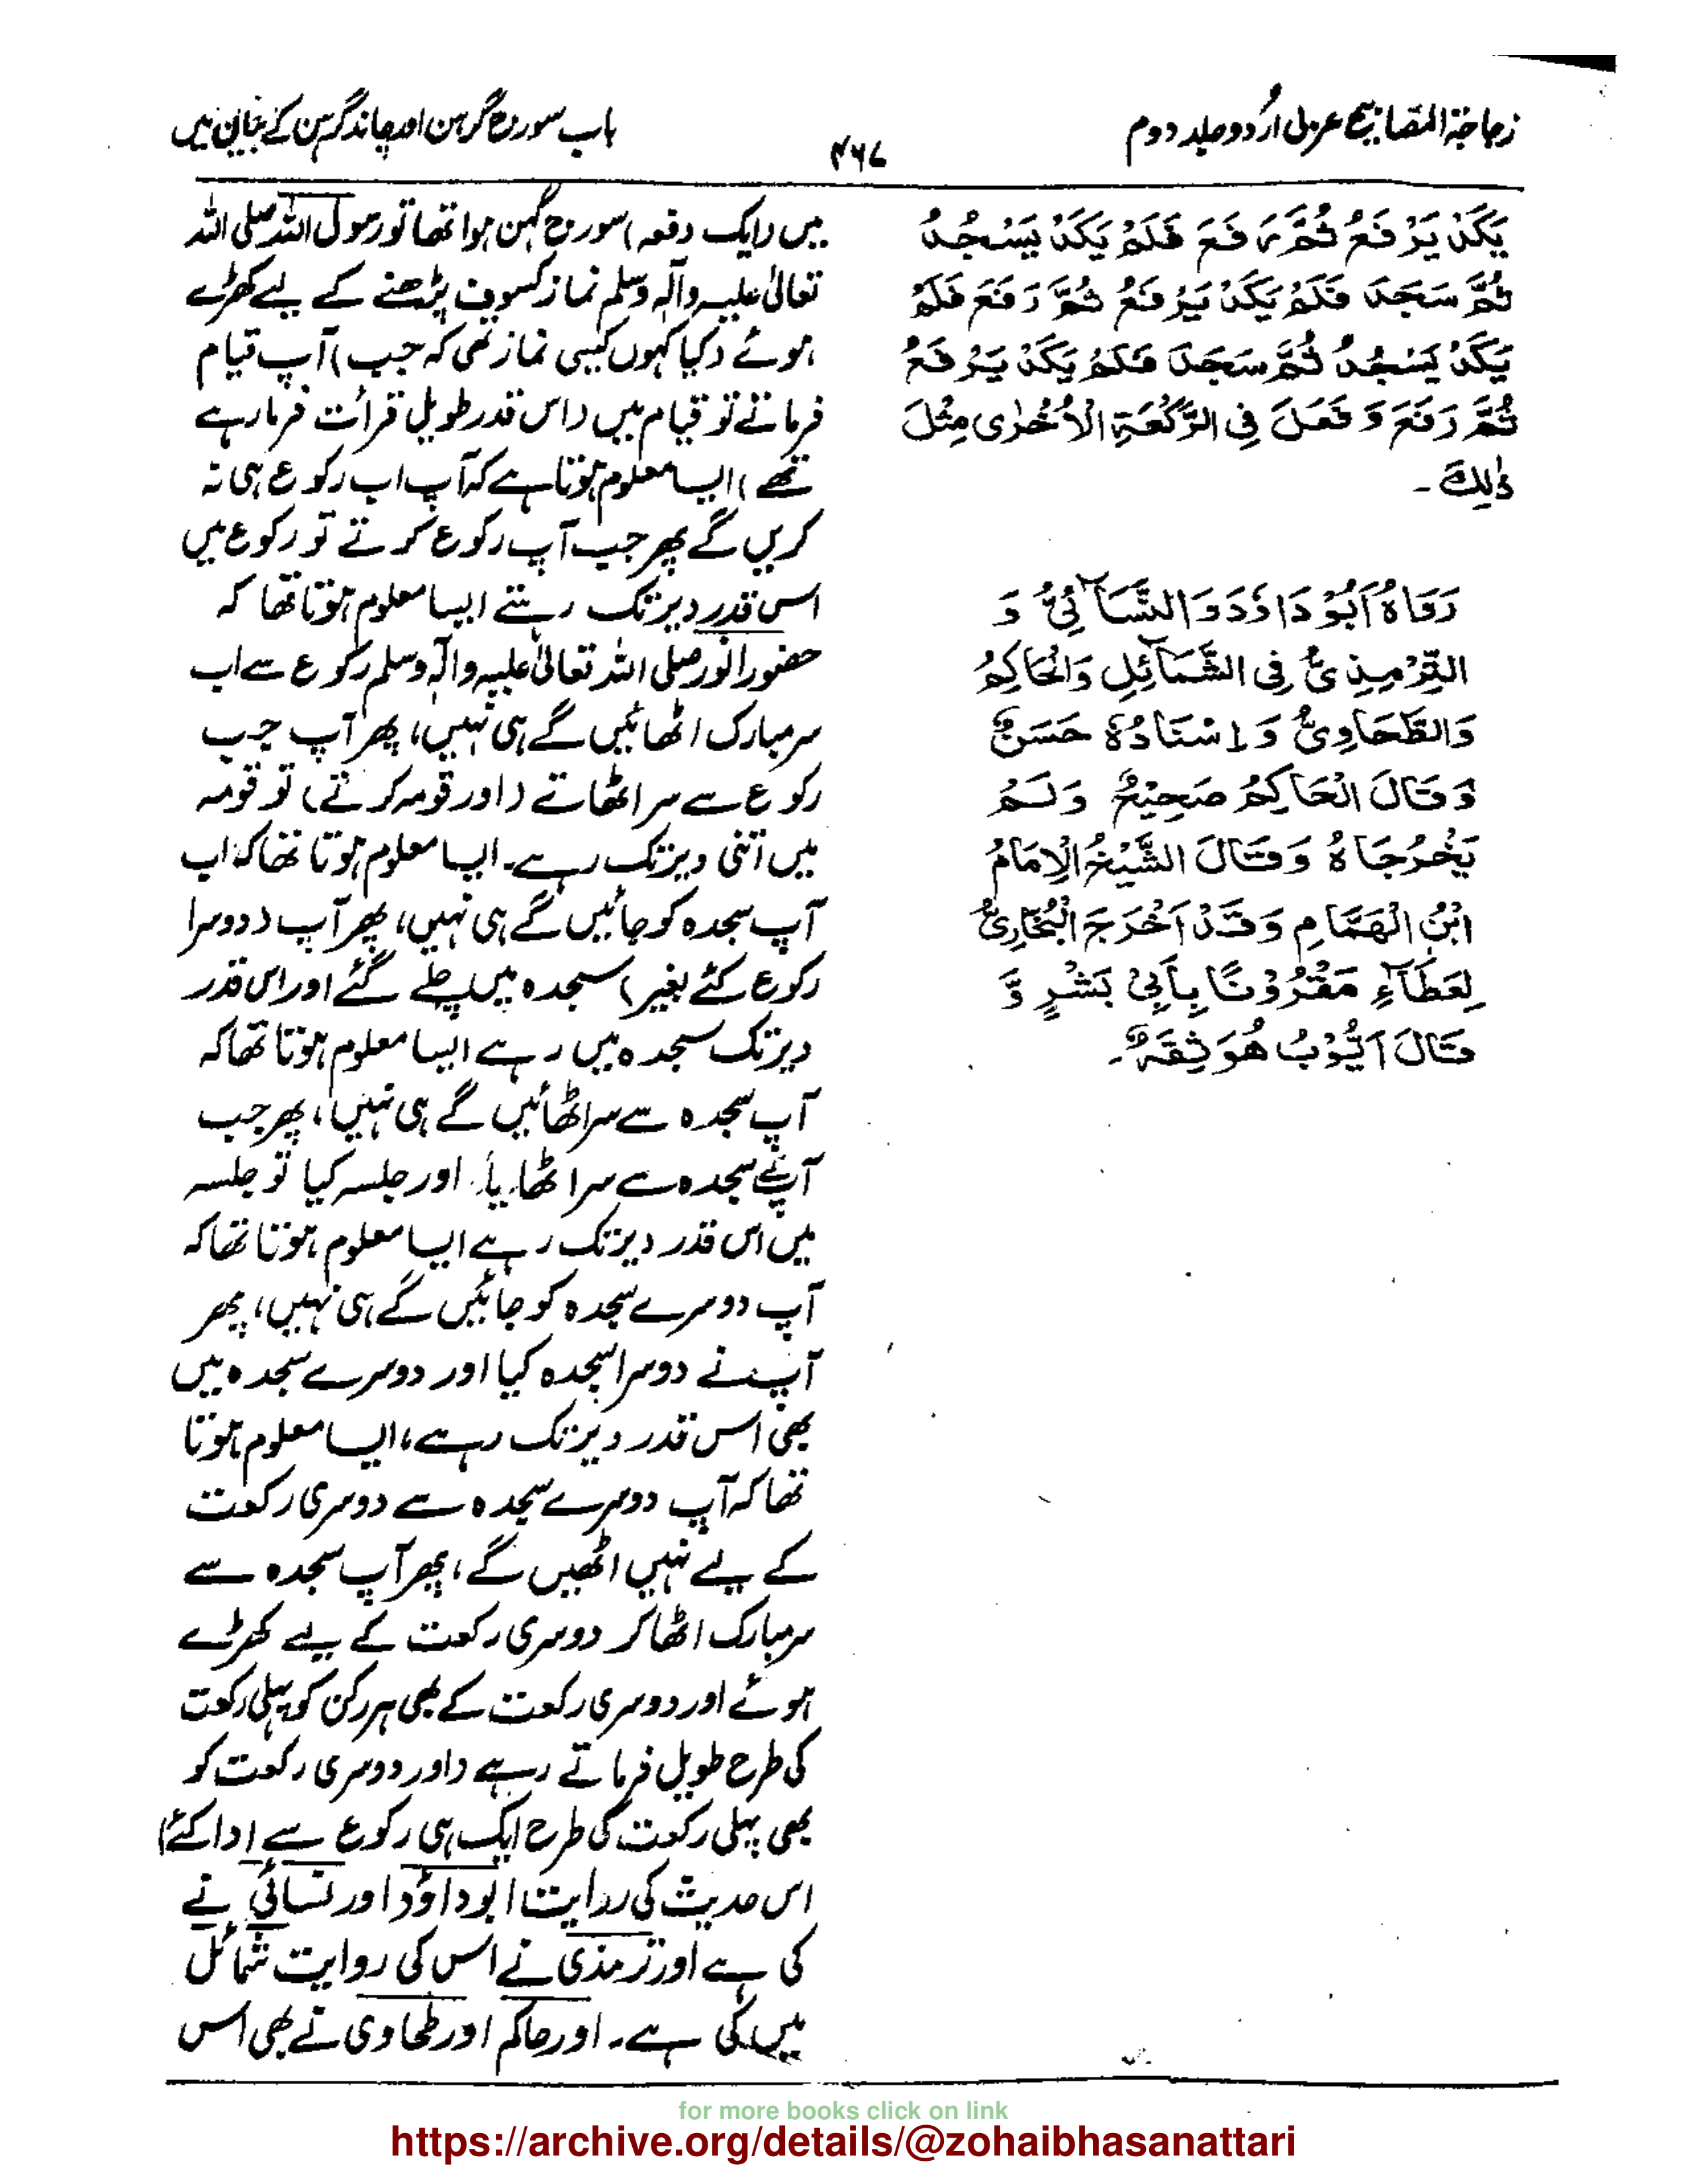 زجاجۃ المصابیح عربی اُردو جلد دوم
۴۶۷
باب سورج گرہن اور چاند گرہن کے بیان میں
يَكَدْ يَرْفَعُ ثُمَّ رَفَعَ فَلَمْ يَكَدْ يَسْجُدُ
ثُمَّ سَجَدَ فَلَمْ يَكَدْ يَرْفَعُ ثُمَّ رَفَعَ فَلَمْ
يَكَدْ يَسْجُدُ ثُمَّ سَجَدَ فَلَمْ يَكَدْ يَرْفَعُ
ثُمَّ رَفَعَ وَفَعَلَ فِى الرَّكْعَةِ الْاُخْرٰى مِثْلَ
ذٰلِكَ -
رَوَاهُ اَبُوْ دَاوٗدَ وَالنَّسَآئِىُّ وَ
التِّرْمِذِىُّ فِى الشَّمَآئِلِ وَالْحَاكِمُ
وَالطَّحَاوِىُّ وَاِسْنَادُهٗ حَسَنٌ
وَقَالَ الْحَاكِمُ صَحِيْحٌ وَلَمْ
يُخْرِجَاهُ وَقَالَ الشَّيْخُ الْاِمَامُ
ابْنُ الْهَمَّامِ وَقَدْ اَخْرَجَ الْبُخَارِىُّ
لِعَطَآءٍ مَقْرُوْنًا بِاَبِىْ بَشْرٍ وَّ
قَالَ اَيُّوْبُ هُوَ ثِقَةٌ۔
میں (ایک دفعہ) سورج گہن ہوا تھا تو رسول اللہ صلی اللہ
تعالیٰ علیہ وآلہ وسلم نماز کسوف پڑھنے کے لیے کھڑے
ہوئے (کیا کہوں کیسی نماز تھی کہ جب) آپ قیام
فرماتے تو قیام میں (اس قدر طویل قرأت فرما رہے
تھے) ایسا معلوم ہوتا ہے کہ آپ اب رکوع ہی نہ
کریں گے پھر جب آپ رکوع کرتے تو رکوع میں
اس قدر دیر تک رہتے ایسا معلوم ہوتا تھا کہ
حضور انور صلی اللہ تعالیٰ علیہ وآلہ وسلم رکوع سے اب
سر مبارک اٹھائیں گے ہی نہیں، پھر آپ جب
رکوع سے سر اٹھاتے (اور قومہ کرتے) تو قومہ
میں اتنی دیر تک رہے۔ ایسا معلوم ہوتا تھا کہ اب
آپ سجدہ کو جائیں گے ہی نہیں، پھر آپ (دوسرا
رکوع کئے بغیر) سجدہ میں چلے گئے اور اس قدر
دیر تک سجدہ میں رہے ایسا معلوم ہوتا تھا کہ
آپ سجدہ سے سر اٹھائیں گے ہی نہیں، پھر جب
آپنے سجدہ سے سر اٹھایا۔ اور جلسہ کیا تو جلسہ
میں اس قدر دیر تک رہے ایسا معلوم ہوتا تھا کہ
آپ دوسرے سجدہ کو جائیں گے ہی نہیں، پھر
آپ نے دوسرا سجدہ کیا اور دوسرے سجدہ میں
بھی اس قدر دیر تک رہے، ایسا معلوم ہوتا
تھا کہ آپ دوسرے سجدہ سے دوسری رکعت
کے لیے نہیں اٹھیں گے، پھر آپ سجدہ سے
سر مبارک اٹھا کر دوسری رکعت کے لیے کھڑے
ہوئے اور دوسری رکعت کے بھی ہر رکن کو پہلی رکعت
کی طرح طویل فرماتے رہے (اور دوسری رکعت کو
بھی پہلی رکعت کی طرح ایک ہی رکوع سے ادا کئے)
اس حدیث کی روایت ابوداؤد اور نسائی نے
کی ہے اور ترمذی نے اس کی روایت شمائل
میں کی ہے۔ اور حاکم اور طحاوی نے بھی اس
for more books click on link
https://archive.org/details/@zohaibhasanattari